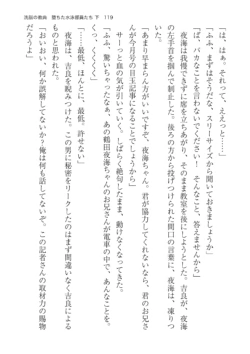 洗脳の教典　堕ちた水泳優翼たち 下　119
「は、はぁ。それで、ええっと……」
「ふふ、まずはそうだな、スリーサイズから聞いておきましょうか」
「そ、そんなこと言わないでください！　そんなこと、答えませんから」
　夜海は我慢できずに席を立ちあがり、そのまま教室を後にしようとした。吉良が、夜海
の左手首を掴んで引き止めた。後ろの方から投げかけられた間口の言葉に、夜海は、凍りつ
いた。
「あまり早まらん方がいいですよ、夜海ちゃん。君が協力してくれないなら、君のお兄さ
んが今月号の目玉記事になることでしょうから」
　サーっと血の気が引いていく。しばらく絶句したまま、動けなくなってきた。
「ふふ、驚いちゃったなぁ、あの鶴田夜海ちゃんのお兄さんが電車の中で、あんなことを
ねぇ、くっ、くくく」
「ほ、ほんとに、最低。ほんとに、最低、許せない」
　夜海は、吉良を睨みつけた。この男に秘密をリークしたのはまず間違いなく吉良による
ものと思われた。
「おいおい、何か誤解してないか？　俺は何も話してないぞ。この記者さんの取材力の賜物